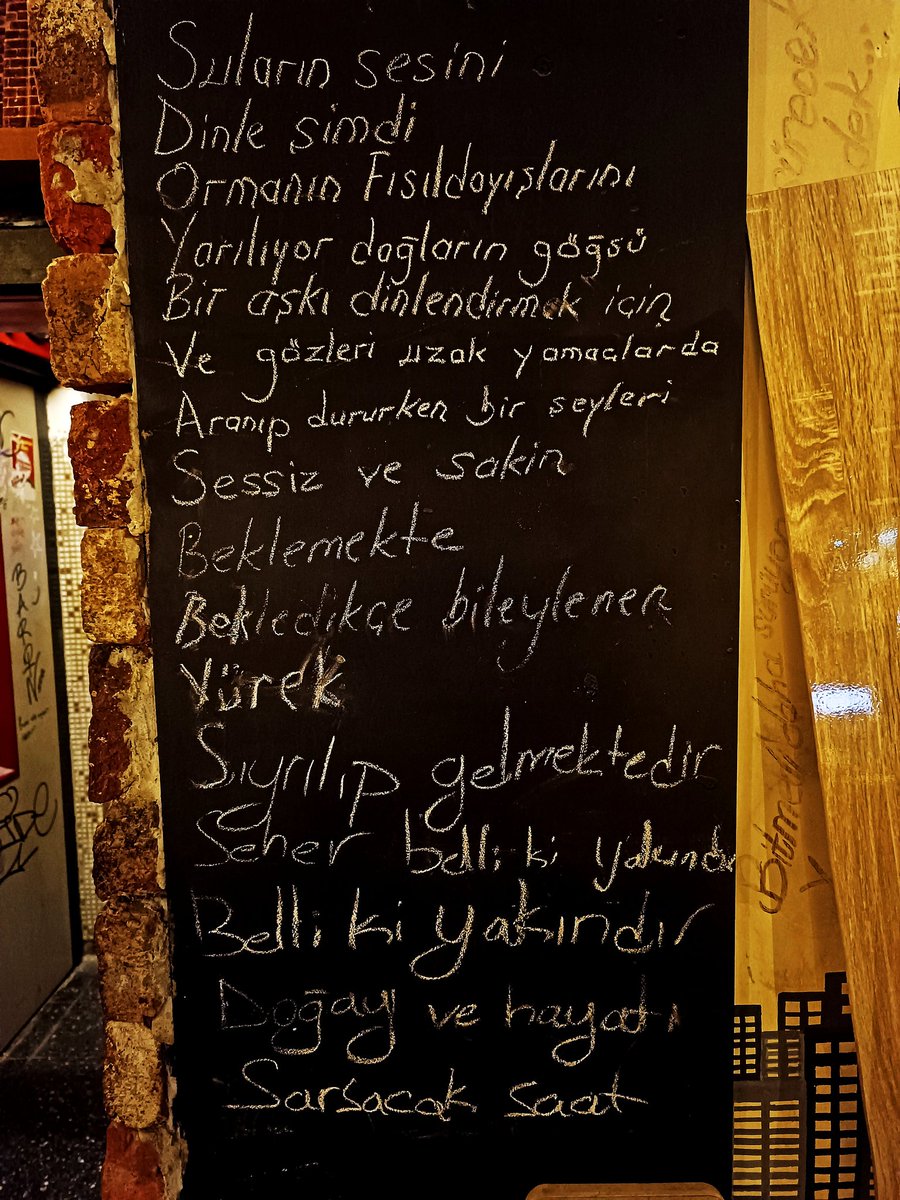 Suların sesini
Dinle şimdi
Ormanın Fısıldayışlarını
Yarılıyor dağların göğsü
Bir aşkı dinlendirmek için
Ve gözleri uzak yamaclarda
Aranıp dururken bir şeyleri
Sessiz ve sakin
Beklemekte
Bekledikçe bileylenen
Yürek
Sıyrılıp gelmektedir
Seher belli ki yakında
Belli ki yakındır
Doğayı ve hayatı
Sarsacak saat